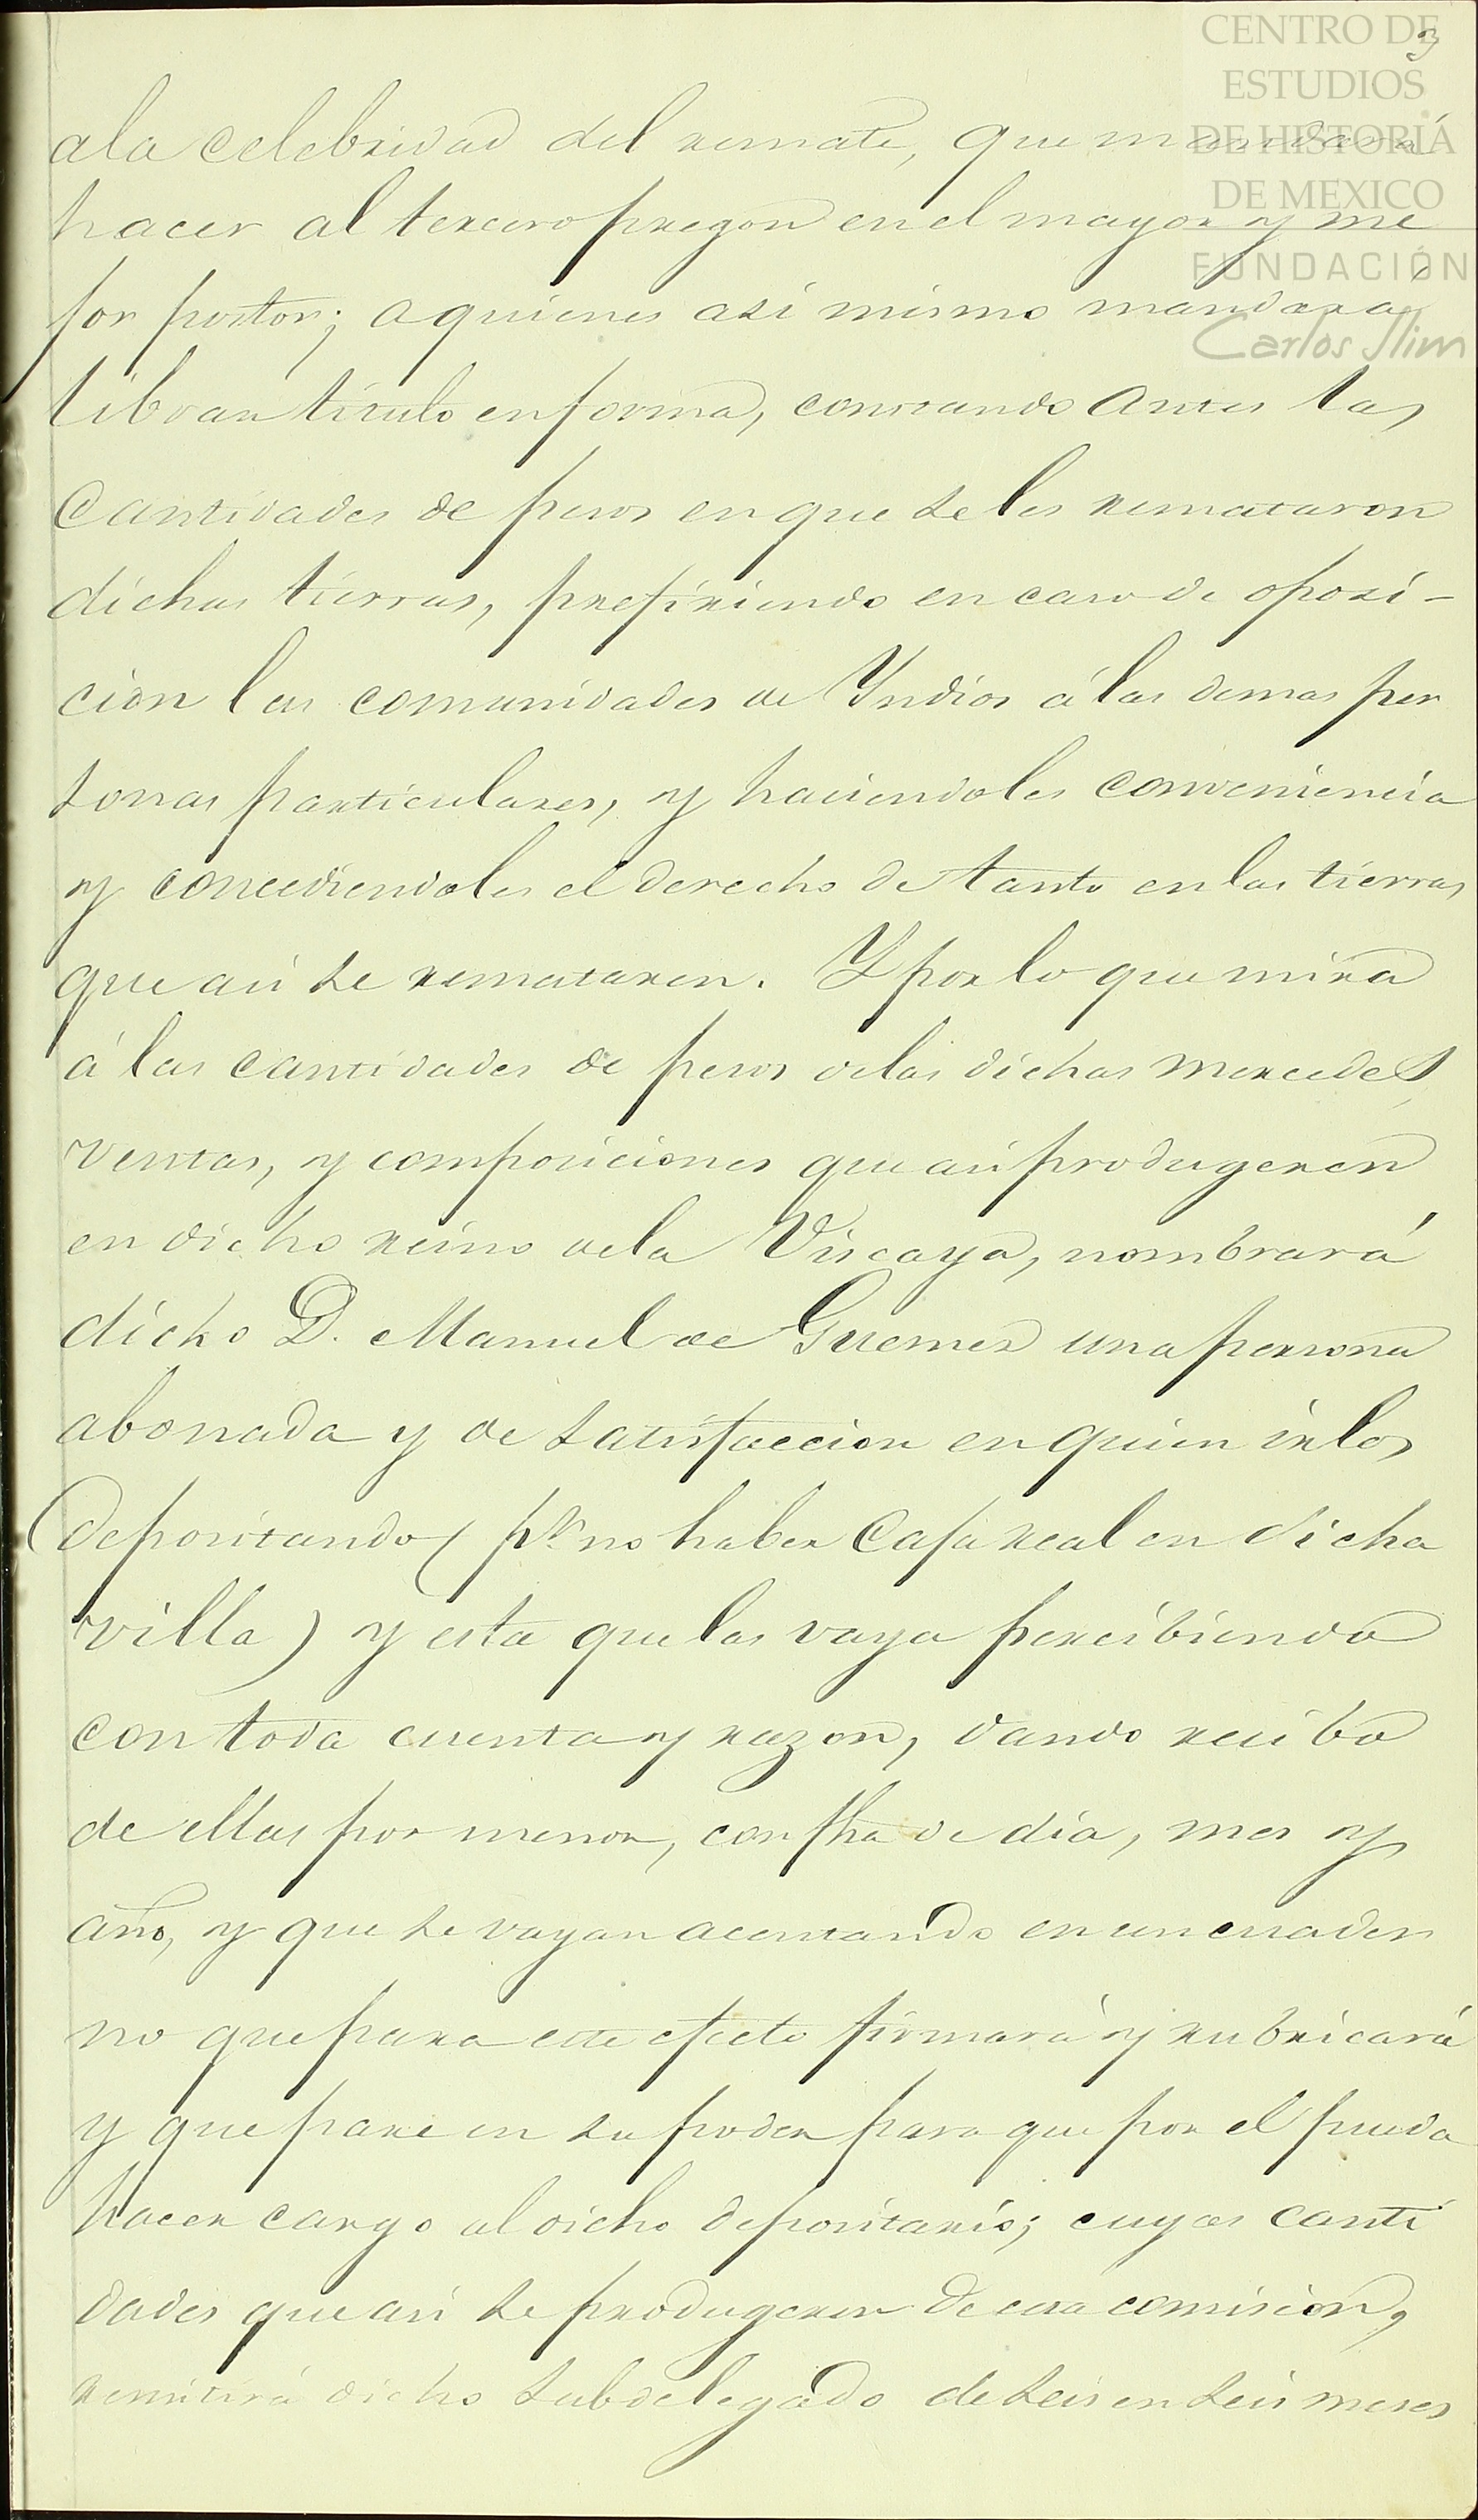 3
CENTRO DE
ESTUDIOS
DE HISTORIA
DE MEXICO
FUNDACIÓN
Carlos Slim
ala celebridad del remate, que mandará
hacer al tercero pregon en el mayor y me
jor postor; a quienes asi mismo mandara
librar titulo en forma, constando antes las
cantidades de pesos en que se les remataron
dichas tierras, prefiriendo en caso de oposi-
cion las comunidades de Yndios á las demas per
sonas particulares, y haciendoles conveniencia
y concediendoles el derecho de tanto en las tierras
que asi se remataren. Y por lo que mira
á las cantidades de pesos de las dichas mercedes,
ventas, y composiciones que asi produgeren
en dicho reino de la Viscaya, nombrará
dicho D. Manuel de Guemes una persona
abonada y de satisfaccion en quien irlos
depositando ( pr. no haber Caja real en dicha
villa) y esta que las vaya percibiendo
con toda cuenta y razon, dando recibo
de ellas por menor, con fha de dia, mes y
año, y que se vayan acentando en un cuader
no que para este efecto firmará y rubricará
y que pare en su poder para que por el pueda
hacer cargo al dicho depositario; cuyas canti
dades que asi se produgeren de esa comision,
remitirá dicho subdelegado de seis en seis meses